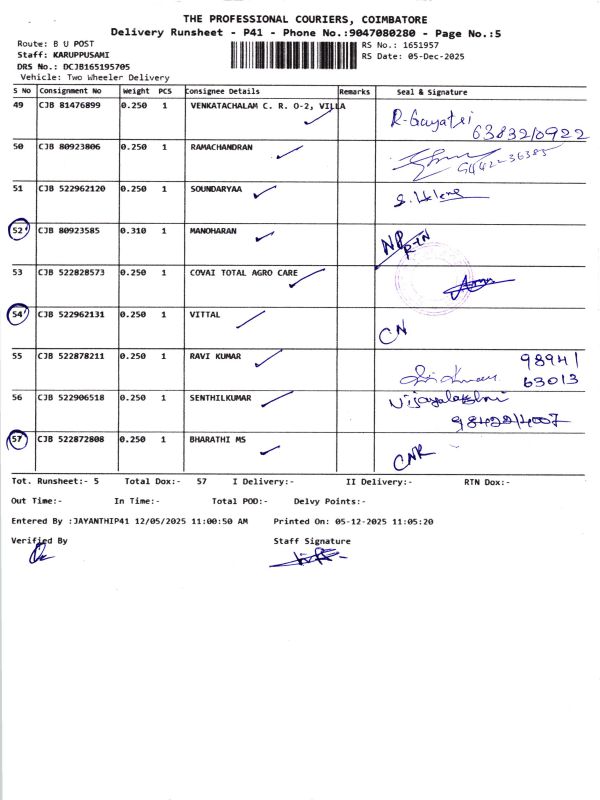 THE PROFESSIONAL COURIERS, COIMBATORE
Delivery Runsheet - P41 - Phone No.:9047080280 - Page No.:5
Route: B U POST
RS No.: 1651957
Staff: KARUPPUSAMI
RS Date: 05-Dec-2025
DRS No.: DCJB165195705
Vehicle: Two Wheeler Delivery
S No Consignment No Weight PCS Consignee Details Remarks Seal & Signature
49 CJB 81476899 0.250 1 VENKATACHALAM C. R. O-2, VILLA R-Gayatri
63832/0922
50 CJB 80923806 0.250 1 RAMACHANDRAN
51 CJB 522962120 0.250 1 SOUNDARYAA S. Helena
52 CJB 80923585 0.310 1 MANOHARAN NP RTN
53 CJB 522828573 0.250 1 COVAI TOTAL AGRO CARE
54 CJB 522962131 0.250 1 VITTAL CN
55 CJB 522878211 0.250 1 RAVI KUMAR 98941
63013
56 CJB 522906518 0.250 1 SENTHILKUMAR Vijayalakshmi
57 CJB 522872808 0.250 1 BHARATHI MS CNR
Tot. Runsheet:- 5 Total Dox:- 57 I Delivery:- II Delivery:- RTN Dox:-
Out Time:- In Time:- Total POD:- Delvy Points:-
Entered By :JAYANTHIP41 12/05/2025 11:00:50 AM Printed On: 05-12-2025 11:05:20
Verified By Staff Signature